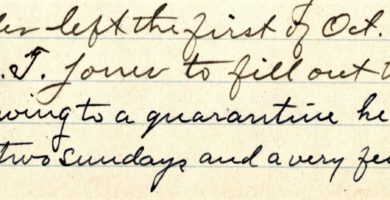 left the first of Oct.
. T. Jones to fill out
owing to a quarantine he
two sundays and a very few